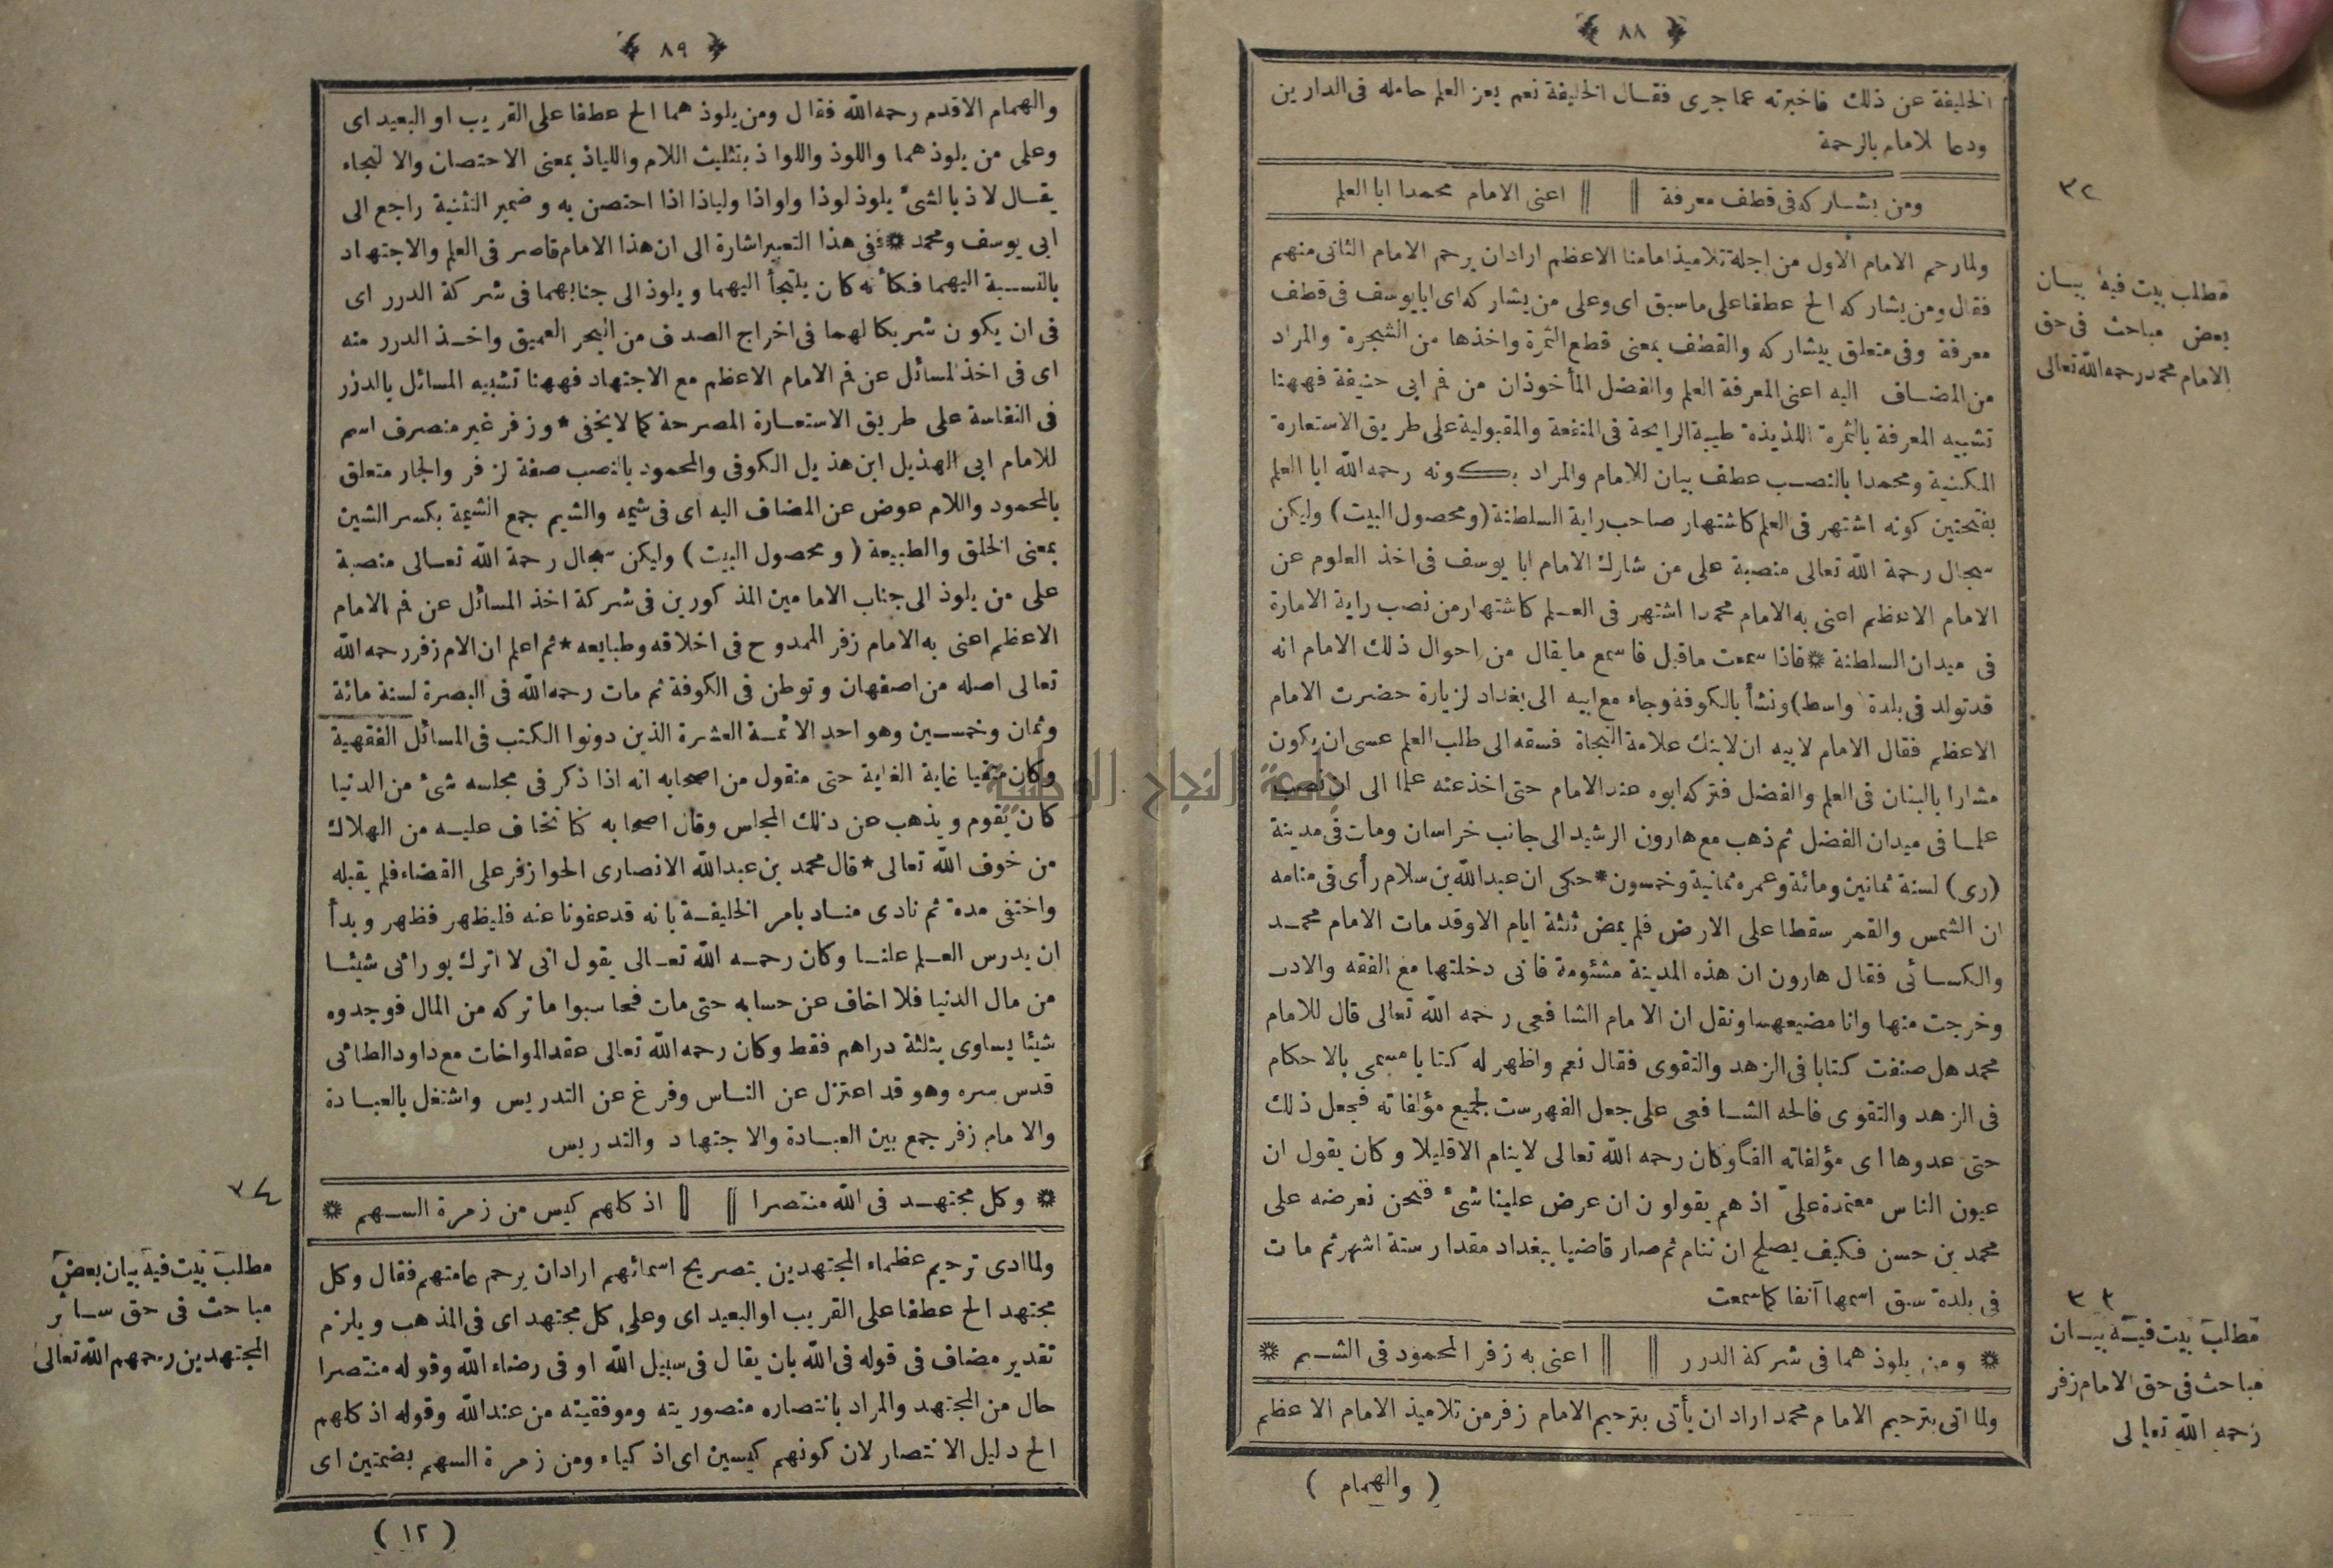 ﴿ ٨٨ ﴾
الخليفة عن ذلك فاخبرته عما جرى فقال الخليفة نعم يعز العلم حامله فى الدارين
ودعا للامام بالرحمة
ومن يشاركه فى قطف معرفة || اعنى الامام محمدا ابا العلم
٣٢
ولما رحم الامام الاول من اجلة تلاميذ امامنا الاعظم ارادان يرحم الامام الثانى منهم
فقال ومن يشاركه الخ عطفا على ماسبق اى وعلى من يشاركه اى ابايوسف فى قطف
معرفة وفى متعلق بيشاركه والقطف بمعنى قطع الثمرة واخذها من الشجرة والمراد
من المضاف اليه اعنى المعرفة العلم والفضل المأخوذان من فم ابى حنيفة فههنا
تشبيه المعرفة بالثمرة اللذيذة طيبة الرايحة فى المنفعة والمقبولية على طريق الاستعارة
المكنية ومحمدا بالنصب عطف بيان للامام والمراد بكونه رحمه الله ابا العلم
بفتحتين كونه اشتهر فى العلم كاشتهار صاحب راية السلطنة (ومحصول البيت) وليكن
سجال رحمة الله تعالى منصبة على من شارك الامام ابا يوسف فى اخذ العلوم عن
الامام الاعظم اعنى به الامام محمدا اشتهر فى العلم كاشتهار من نصب راية الامارة
فى ميدان السلطنة * فاذا سمعت ماقبل فاسمع مايقال من احوال ذلك الامام انه
قد تولد فى بلدة (واسط) ونشأ بالكوفة وجاء مع ابيه الى بغداد لزيارة حضرت الامام
الاعظم فقال الامام لابيه ان لابنك علامة النجاة فسقه الى طلب العلم عسى ان يكون
مشارا بالبنان فى العلم والفضل فتركه ابوه عند الامام حتى اخذ عنه علما الى ان نصب
علما فى ميدان الفضل ثم ذهب مع هارون الرشيد الى جانب خراسان ومات فى مدينة
(رى) لسنة ثمانين ومائة وعمره ثمانية وخمسون * حكى ان عبدالله بن سلام رأى فى منامه
ان الشمس والقمر سقطا على الارض فلم يمض ثلثة ايام الاوقد مات الامام محمد
والكسائى فقال هارون ان هذه المدينة مشئومة فانى دخلتها مع الفقه والادب
وخرجت منها وانا مضيعهما ونقل ان الامام الشافعى رحمه الله تعالى قال للامام
محمد هل صنفت كتابا فى الزهد والتقوى فقال نعم واظهر له كتابا مسمى بالاحكام
فى الزهد والتقوى فالحه الشافعى على جعل الفهرست لجميع مؤلفاته فجعل ذلك
حتى عدوها اى مؤلفاته الفا وكان رحمه الله تعالى لاينام الاقليلا وكان يقول ان
عيون الناس معتمدة علىّ اذ هم يقولون ان عرض علينا شئ فنحن نعرضه على
محمد بن حسن فكيف يصلح ان ننام ثم صار قاضيا ببغداد مقدار ستة اشهر ثم مات
فى بلدة سبق اسمها آنفا كما سمعت
* ومن يلوذ هما فى شركة الدرر || اعنى به زفر المحمود فى الشيم *
٣٣
ولما اتى بترحيم الامام محمد اراد ان يأتى بترحيم الامام زفر من تلاميذ الامام الاعظم
( والهمام )
مطلب بيت فيه بيان
بعض مباحث فى حق
الامام محمد رحمه الله تعالى
مطلب بيت فيه بيان
مباحث فى حق الامام زفر
رحمه الله تعالى
﴿ ٨٩ ﴾
والهمام الاقدم رحمه الله فقال ومن يلوذ هما الخ عطفا على القريب او البعيد اى
وعلى من يلوذ هما واللوذ واللواذ بتثليث اللام واللياذ بمعنى الاحتصان والالتجاء
يقال لاذ بالشئ يلوذ لوذا ولواذا ولياذا اذا احتصن به وضمير التثنية راجع الى
ابى يوسف ومحمد * ففى هذا التعبير اشارة الى ان هذا الامام قاصر فى العلم والاجتهاد
بالنسبة اليهما فكأنه كان يلتجأ اليهما ويلوذ الى جنابهما فى شركة الدرر اى
فى ان يكون شريكا لهما فى اخراج الصدف من البحر العميق واخذ الدرر منه
اى فى اخذ المسائل عن فم الامام الاعظم مع الاجتهاد فههنا تشبيه المسائل بالدرر
فى النفاسة على طريق الاستعارة المصرحة كما لايخفى * وزفر غير منصرف اسم
للامام ابى الهذيل ابن هذيل الكوفى والمحمود بالنصب صفة لزفر والجار متعلق
بالمحمود واللام عوض عن المضاف اليه اى فى شيمه والشيم جمع الشيمة بكسر الشين
بمعنى الخلق والطبيعة (ومحصول البيت) وليكن سجال رحمة الله تعالى منصبة
على من يلوذ الى جناب الامامين المذكورين فى شركة اخذ المسائل عن فم الامام
الاعظم اعنى به الامام زفر الممدوح فى اخلاقه وطبايعه * ثم اعلم ان الامام زفر رحمه الله
تعالى اصله من اصفهان وتوطن فى الكوفة ثم مات رحمه الله فى البصرة لسنة مائة
وثمان وخمسين وهو احد الائمة العشرة الذين دونوا الكتب فى المسائل الفقهية
وكان متقيا غاية الغاية حتى منقول من اصحابه انه اذا ذكر فى مجلسه شئ من الدنيا
كان يقوم ويذهب عن ذلك المجلس وقال اصحابه كنا نخاف عليه من الهلاك
من خوف الله تعالى * قال محمد بن عبدالله الانصارى الحوا زفر على القضاء فلم يقبله
واختفى مدة ثم نادى مناد بامر الخليفة بانه قد عفونا عنه فليظهر فظهر وبدأ
ان يدرس العلم علنا وكان رحمه الله تعالى يقول انى لا اترك بورائى شيئا
من مال الدنيا فلا اخاف عن حسابه حتى مات فحاسبوا ماتركه من المال فوجدوه
شيئا يساوى بثلثة دراهم فقط وكان رحمه الله تعالى عقد المواخات مع داود الطائى
قدس سره وهو قد اعتزل عن الناس وفرغ عن التدريس واشتغل بالعبادة
والامام زفر جمع بين العبادة والاجتهاد والتدريس
* وكل مجتهد فى الله منتصرا || اذ كلهم كيس من زمرة السهم *
٣٤
ولما ادى ترحيم عظماء المجتهدين بتصريح اسمائهم ارادان يرحم عامتهم فقال وكل
مجتهد الخ عطفا على القريب او البعيد اى وعلى كل مجتهد اى فى المذهب ويلزم
تقدير مضاف فى قوله فى الله بان يقال فى سبيل الله او فى رضاء الله وقوله منتصرا
حال من المجتهد والمراد بانتصاره منصوريته وموفقيته من عندالله وقوله اذ كلهم
الخ دليل الانتصار لان كونهم كيسين اى اذكياء ومن زمرة السهم بضمتين اى
( ١٢ )
مطلب بيت فيه بيان بعض
مباحث فى حق سائر
المجتهدين رحمهم الله تعالى
جامعة النجاح الوطنية